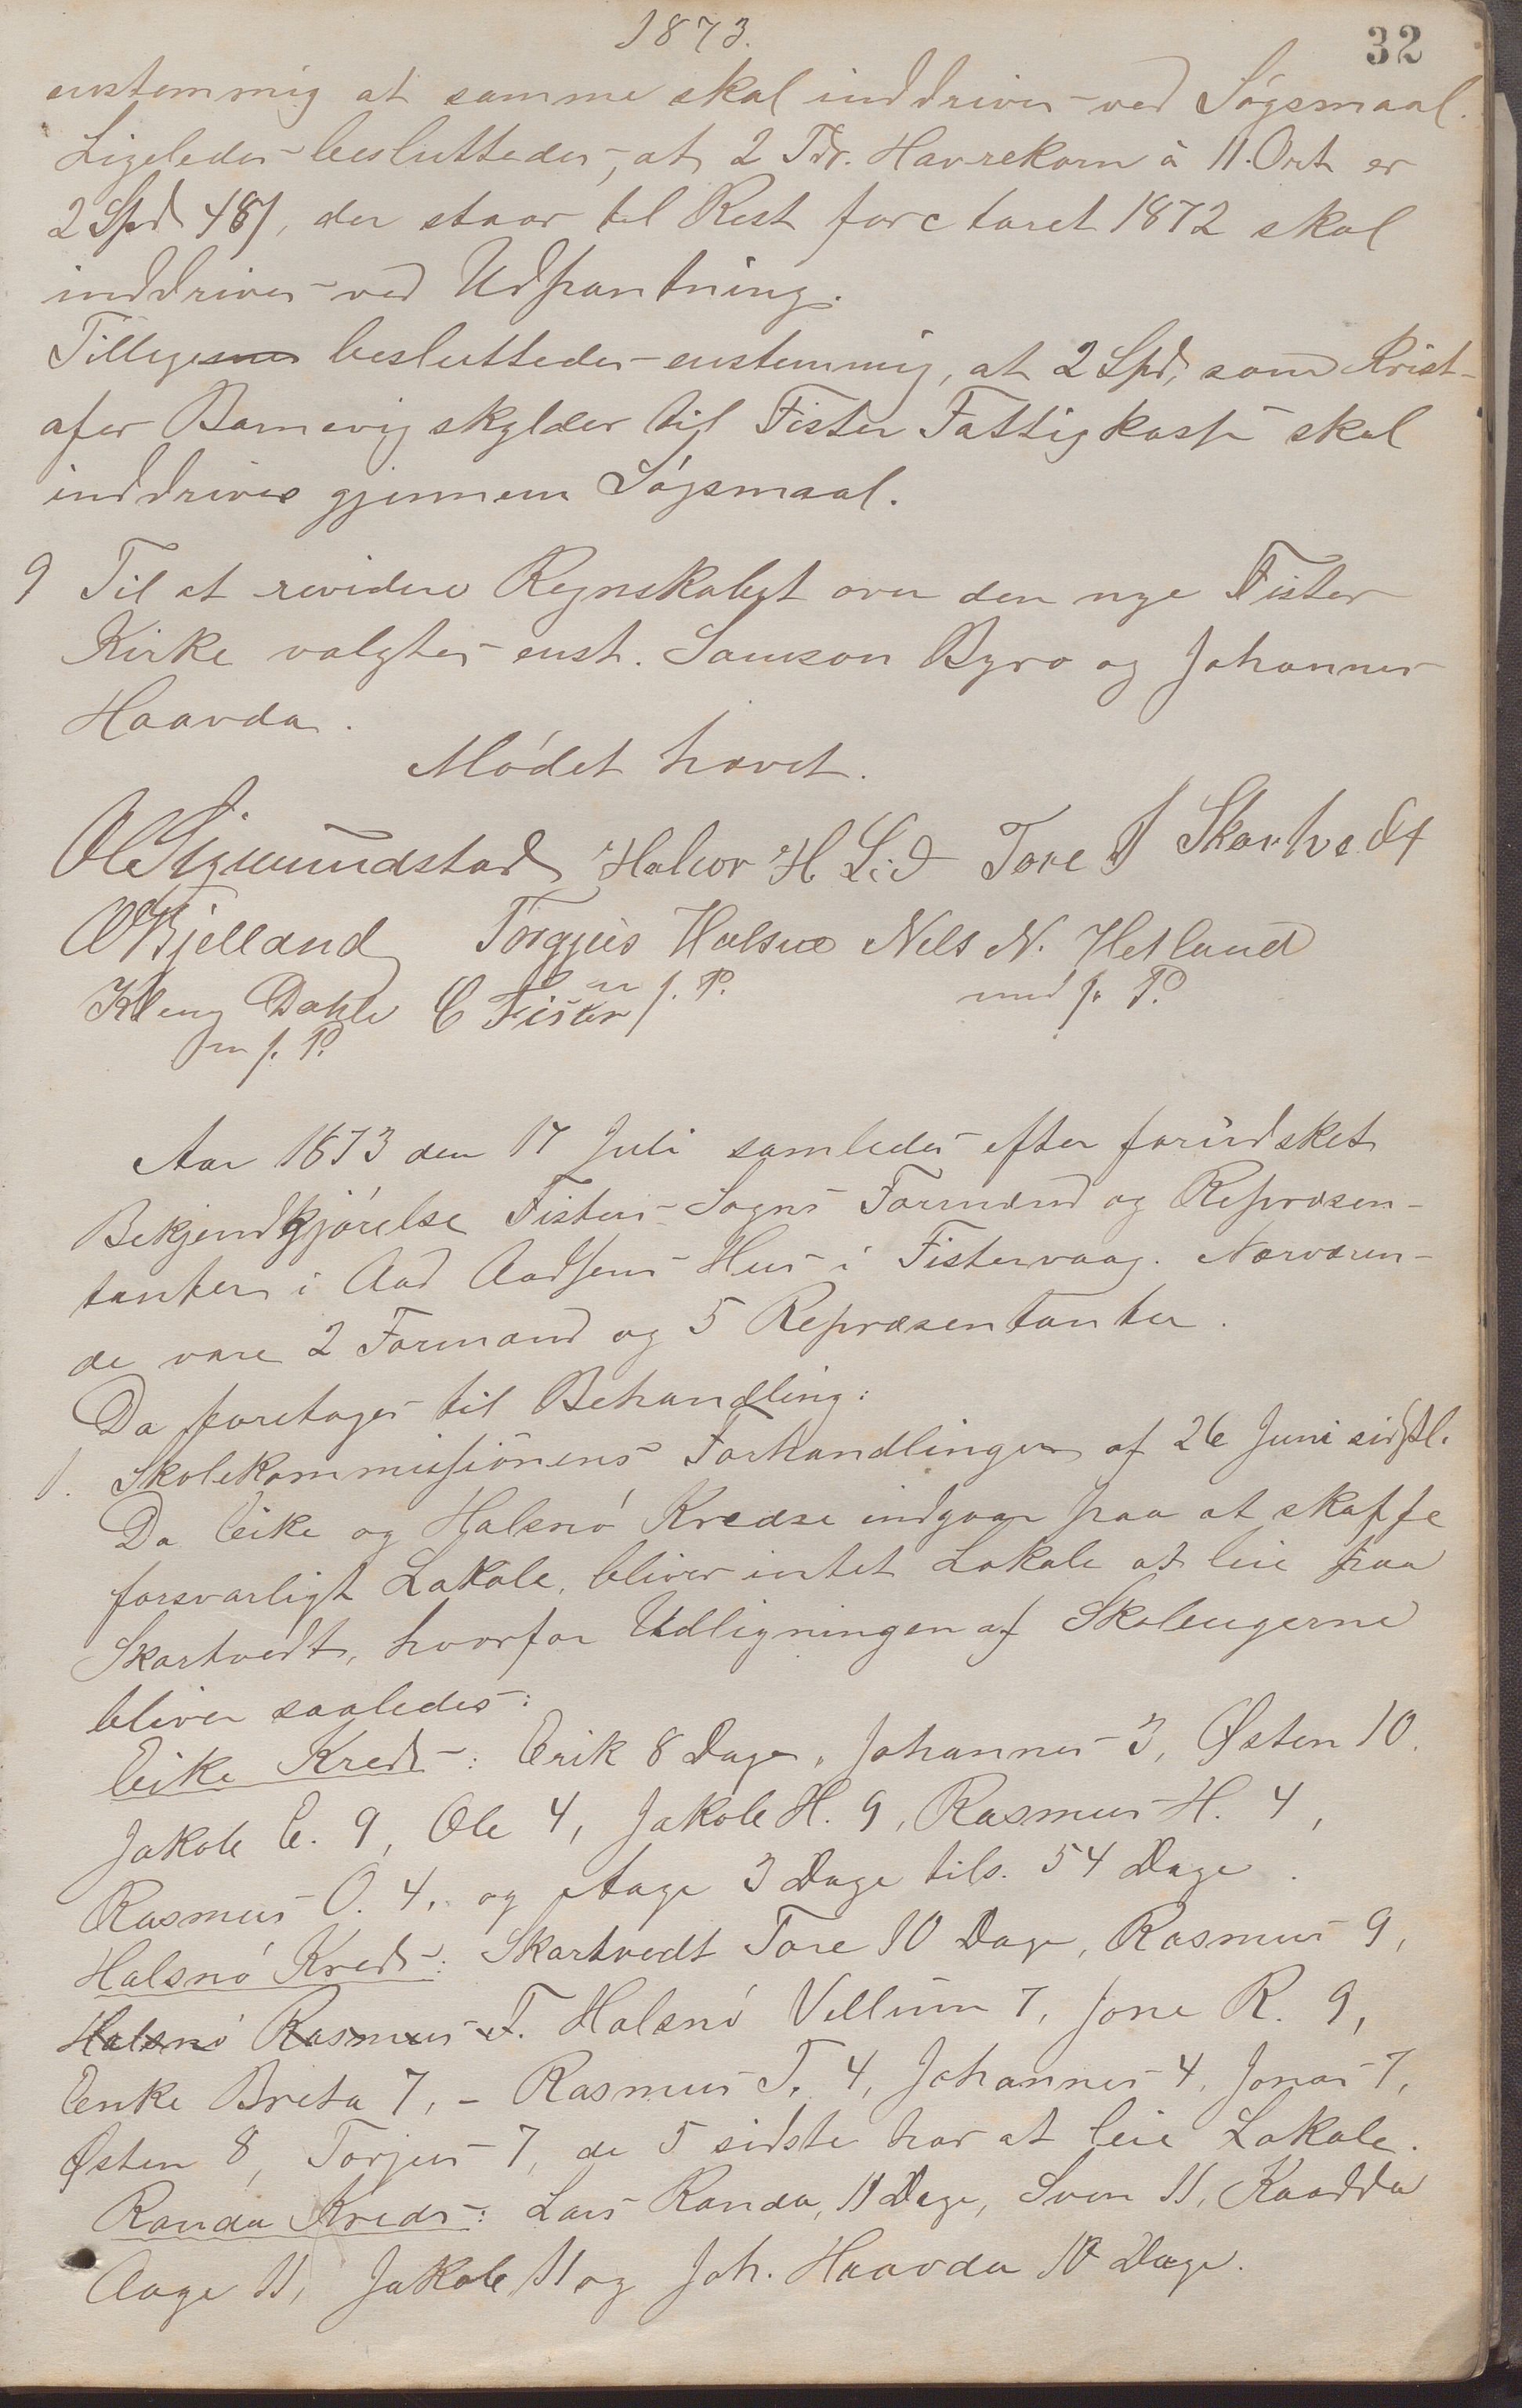 1873.
32
enstemmig at samme skal inddrives ved Søgsmaal.
Ligeledes besluttedes, at 2 Tdr. Havrekorn à 11. Ort er
2 Spd 48/, der staar til Rest for Aaret 1872 skal
inddrives ved Udpantning.
Tilliges besluttedes enstemmig, at 2 Spd, som Krist-
afer Barnevig skylder til Fister Fattigkasse skal
inddrives gjennem Søgsmaal.
9 Til at revidere Regnskabet over den nye Fister
Kirke valgtes enst. Samson Byro og Johannes
Haavda.
Mødet hævet.
Ol Sigmundstad Halvor H Lid Tore T Skartvedt
O Bjelland Torgjus Halsne Nels N. Hetland
Kleng Dahle C Fister m f. P. med p. P.
m p. P.
Aar 1873 den 17 Juli samledes efter forudsket
Bekjendtgjørelse Fisters Sogns Formænd og Repræsen-
tanter i Aad Aadsens Hus i Fistervaag. Nærværen-
de vare 2 Formænd og 5 Repræsentanter.
Da foretoges til Behandling:
1. Skolekommissionens Forhandlinger af 26 Juni sidstl.
Da Eike og Halsnø Kredse indgaar paa at skaffe
forsvarligt Lokale, bliver intet Lokale at leie paa
Skartvedt, hvorfor Udligningen af Skoleugerne
bliver saaledes:
Eike Kreds: Erik 8 Dage, Johannes 3, Østen 10.
Jakob E. 9, Ole 4, Jakob H. 9, Rasmus H. 4,
Rasmus O. 4, og Aage 3 Dage tils. 54 Dage.
Halsnø Kreds: Skartvedt Tore 10 Dage, Rasmus 9,
Halsnø Rasmus T. Halsnø Villum 7, Jone R. 9,
Enke Breta 7, - Rasmus T. 4, Johannes 4, Jonas 7,
Østen 8, Torjus 7, de 5 sidste har at leie Lokale.
Randa Kreds: Lars Randa, 11 Dage, Sven 11, Kaadda
Aage 11, Jakob 11 og Joh. Haavda 10 Dage.